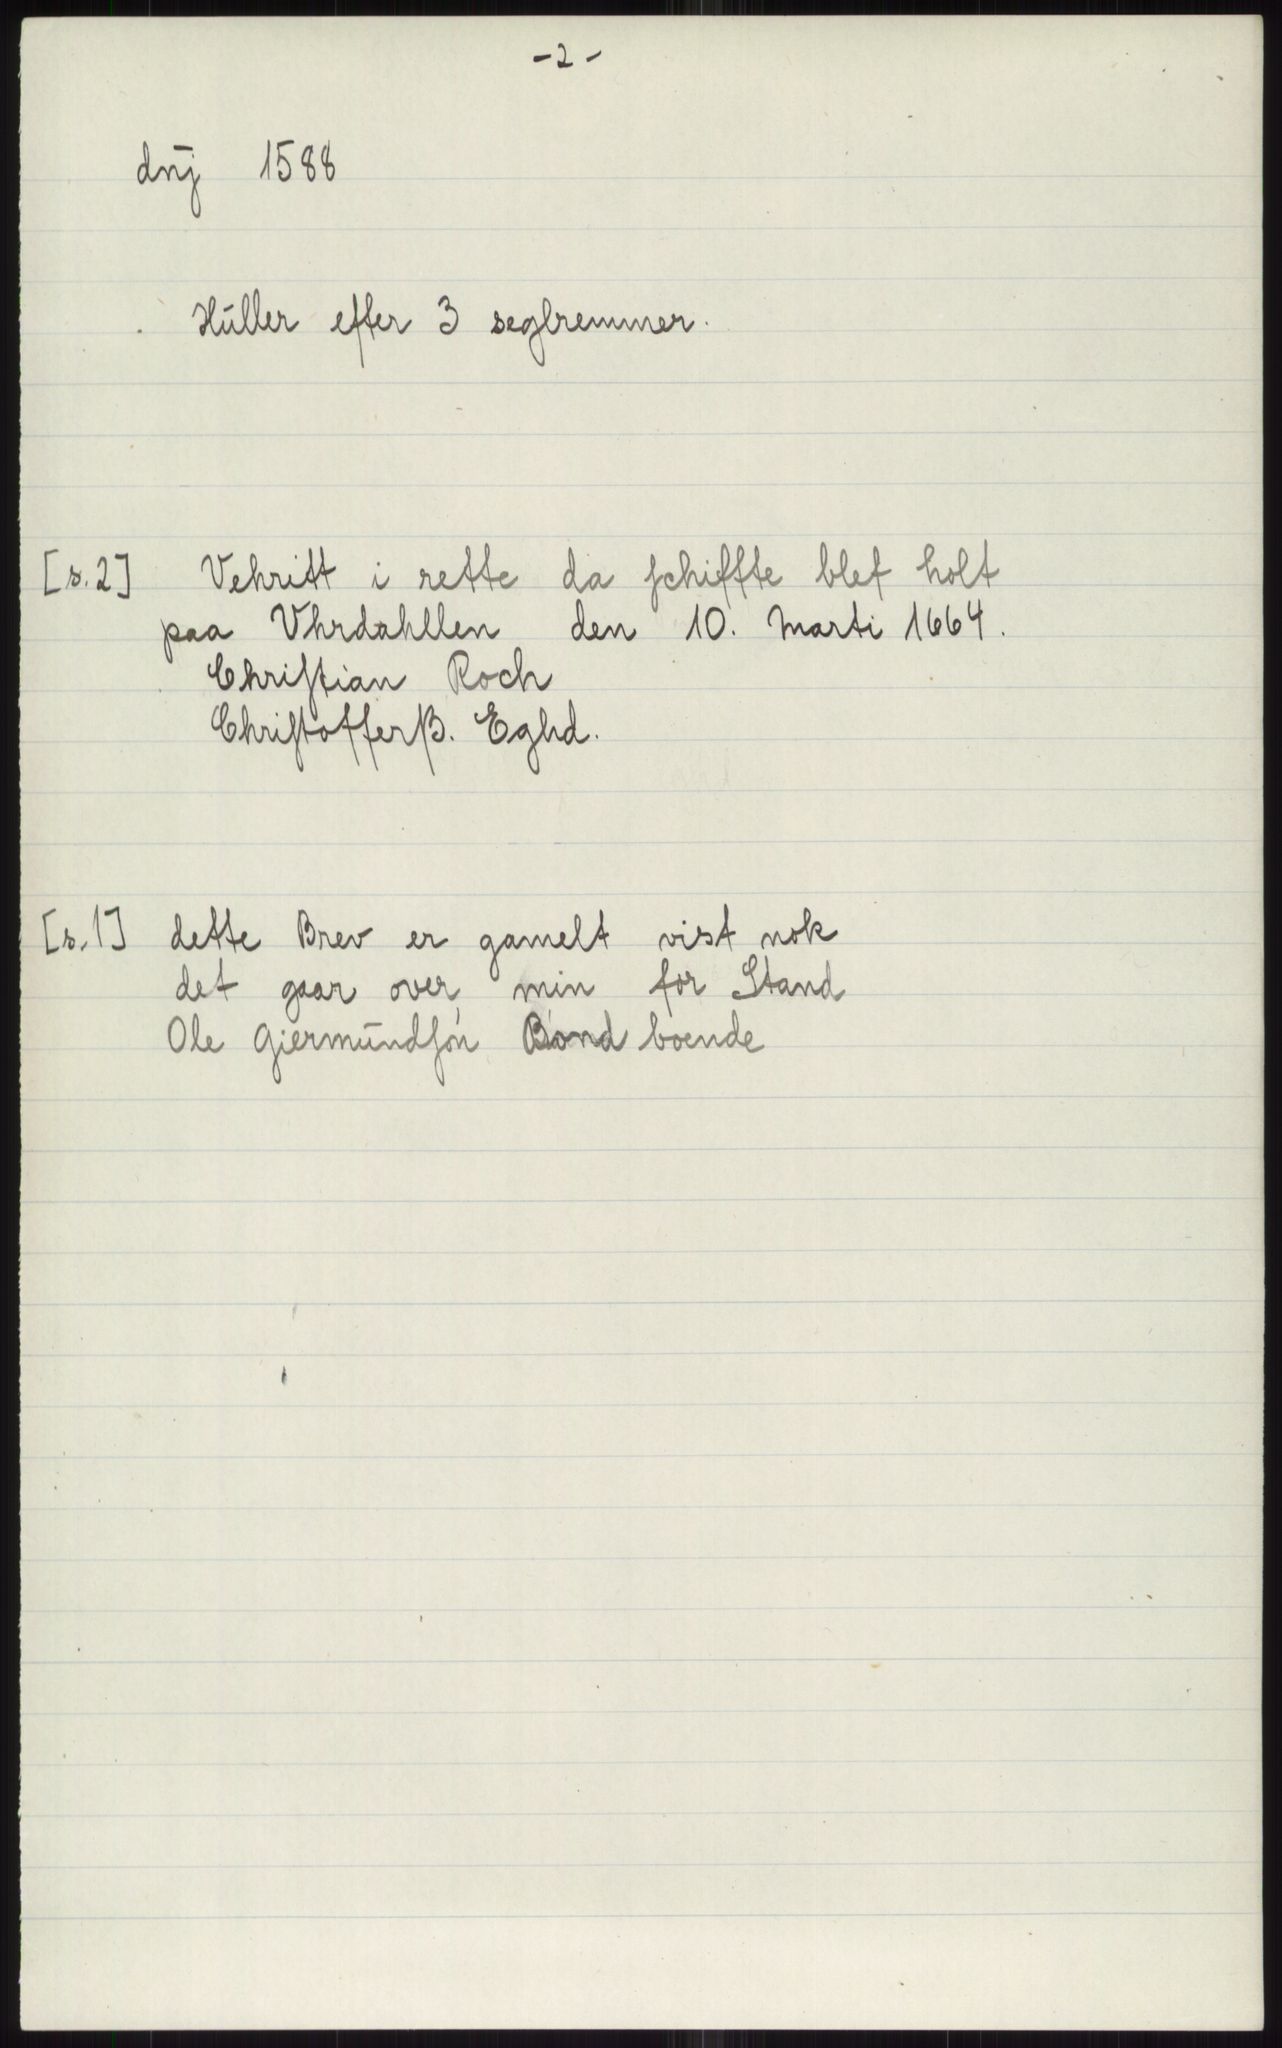 -2-
dn̄j 1588
Hūller efter 3 seglremmer.
[s.2] Vehritt i rette da ſchiffte blef holt
paa Vhrdahllen den 10. Marti 1664.
Chriſtian Roch
Chriſtofferß. Eghd.
[s.1] dette Brev er gamelt vist nok
det gaar over min for Stand
Ole Giermūndſón Bónd boende